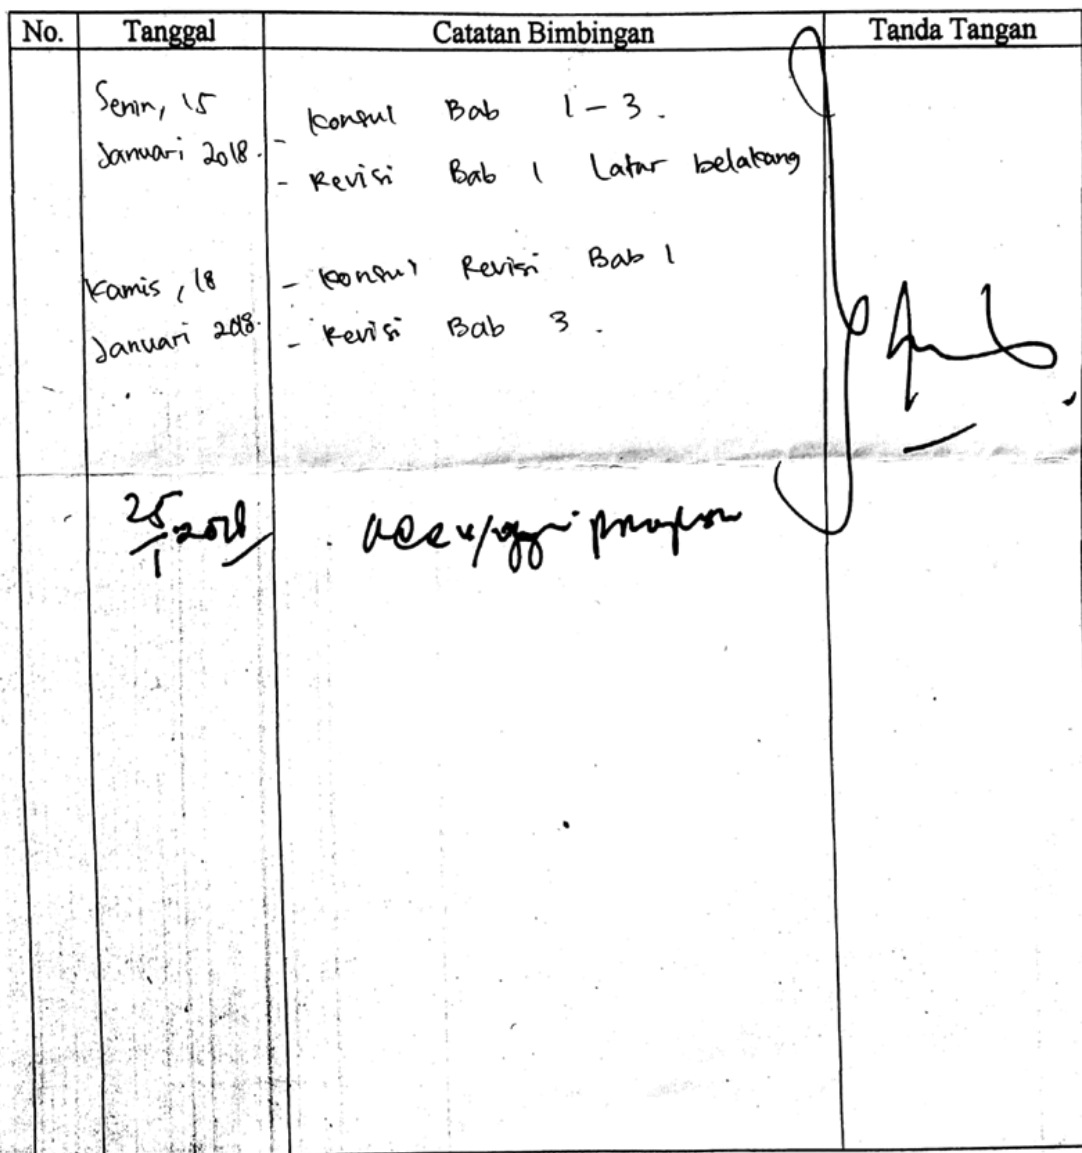 No. Tanggal Catatan Bimbingan Tanda Tangan
Senin, 15
Januari 2018.
- Konsul Bab 1-3.
- Revisi Bab 1 Latar belakang
Kamis, 18
Januari 2018.
- Konsul Revisi Bab 1
- Revisi Bab 3.
25/1 2018
acc u/